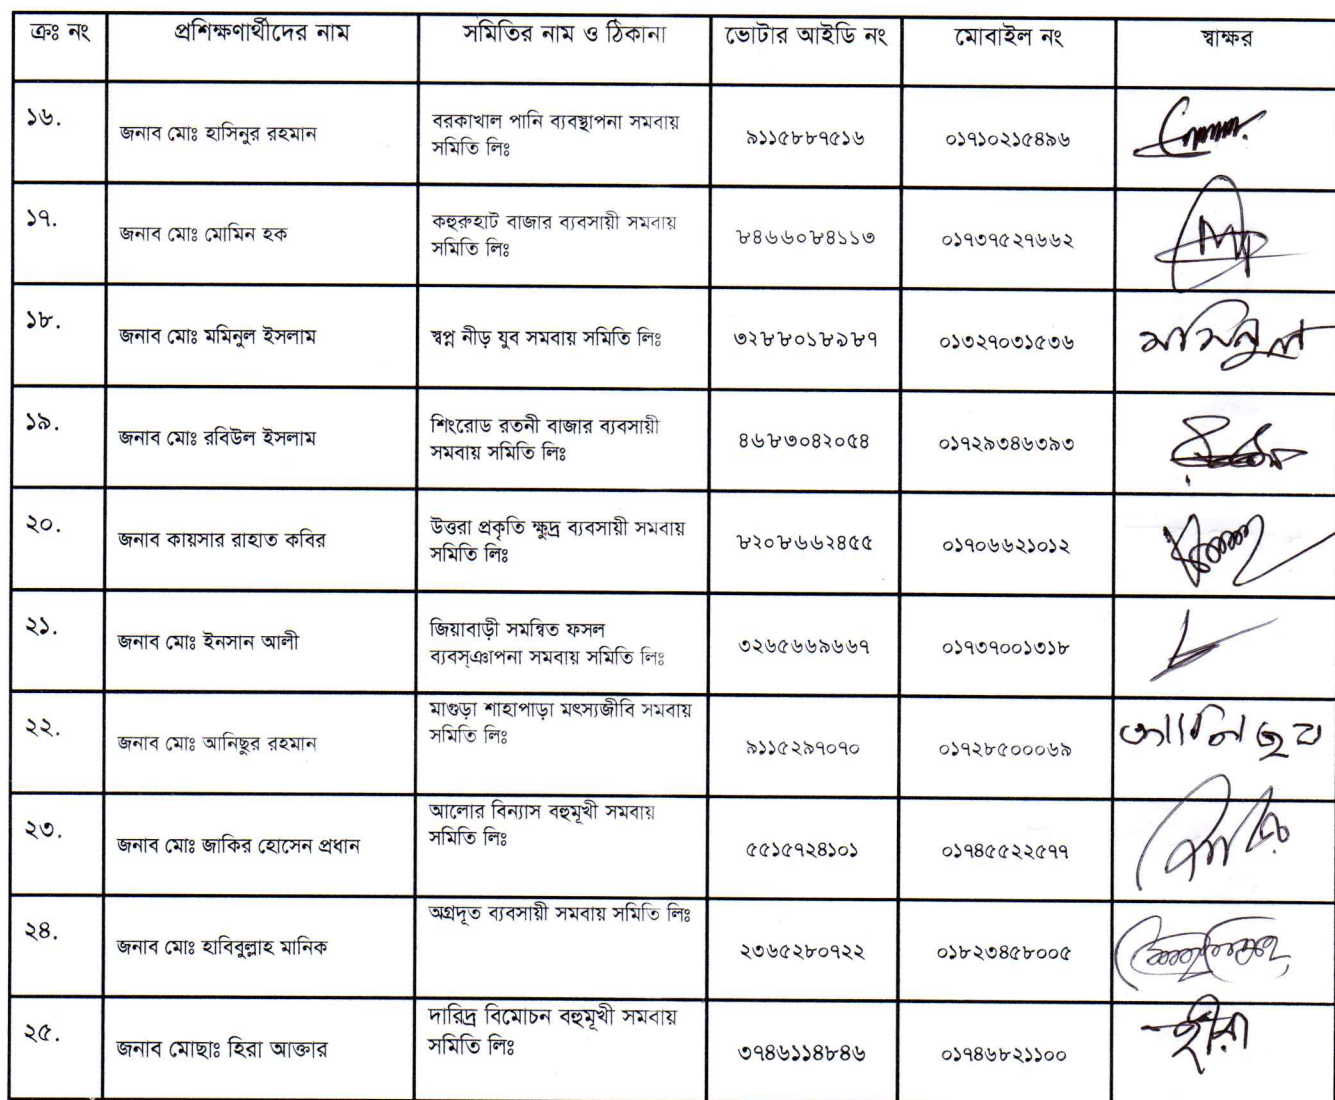 ক্রঃ নং প্রশিক্ষণার্থীদের নাম সমিতির নাম ও ঠিকানা ভোটার আইডি নং মোবাইল নং স্বাক্ষর
১৬. জনাব মোঃ হাসিনুর রহমান বরকাখাল পানি ব্যবস্থাপনা সমবায়
সমিতি লিঃ ৯১১৫৮৮৭৫১৬ ০১৭১০২১৫৪৯৬
১৭. জনাব মোঃ মোমিন হক কহুরুহাট বাজার ব্যবসায়ী সমবায়
সমিতি লিঃ ৮৪৬৬০৮৪১১৩ ০১৭৩৭৫২৭৬৬২
১৮. জনাব মোঃ মমিনুল ইসলাম স্বপ্ন নীড় যুব সমবায় সমিতি লিঃ ৩২৮৮০১৮৯৮৭ ০১৩২৭০৩১৫৩৬ মমিনুল
১৯. জনাব মোঃ রবিউল ইসলাম শিংরোড রতনী বাজার ব্যবসায়ী
সমবায় সমিতি লিঃ ৪৬৮৩০৪২০৫৪ ০১৭২৯৩৪৬৩৯৩
২০. জনাব কায়সার রাহাত কবির উত্তরা প্রকৃতি ক্ষুদ্র ব্যবসায়ী সমবায়
সমিতি লিঃ ৮২০৮৬৬২৪৫৫ ০১৭০৬৬২১০১২
২১. জনাব মোঃ ইনসান আলী জিয়াবাড়ী সমন্বিত ফসল
ব্যবস্ঞাপনা সমবায় সমিতি লিঃ ৩২৬৫৬৬৯৬৬৭ ০১৭৩৭০০১৩১৮
২২. জনাব মোঃ আনিছুর রহমান মাগুড়া শাহাপাড়া মৎস্যজীবি সমবায়
সমিতি লিঃ ৯১১৫২৯৭০৭০ ০১৭২৮৫০০০৬৯ আনিছুর
২৩. জনাব মোঃ জাকির হোসেন প্রধান আলোর বিন্যাস বহুমূখী সমবায়
সমিতি লিঃ ৫৫১৫৭২৪১০১ ০১৭৪৫৫২২৫৭৭
২৪. জনাব মোঃ হাবিবুল্লাহ মানিক অগ্রদূত ব্যবসায়ী সমবায় সমিতি লিঃ ২৩৬৫২৮০৭২২ ০১৮২৩৪৫৮০০৫
২৫. জনাব মোছাঃ হিরা আক্তার দারিদ্র বিমোচন বহুমূখী সমবায়
সমিতি লিঃ ৩৭৪৬১১৪৮৪৬ ০১৭৪৬৮২১১০০ হীরা